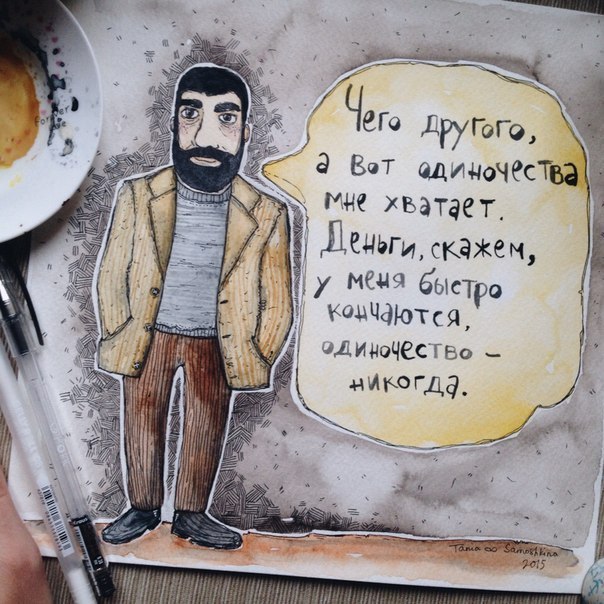 Чего другого,
а вот одиночества
мне хватает.
Деньги, скажем,
у меня быстро
кончаются,
одиночество –
никогда.
Tania Samoshkina
2015